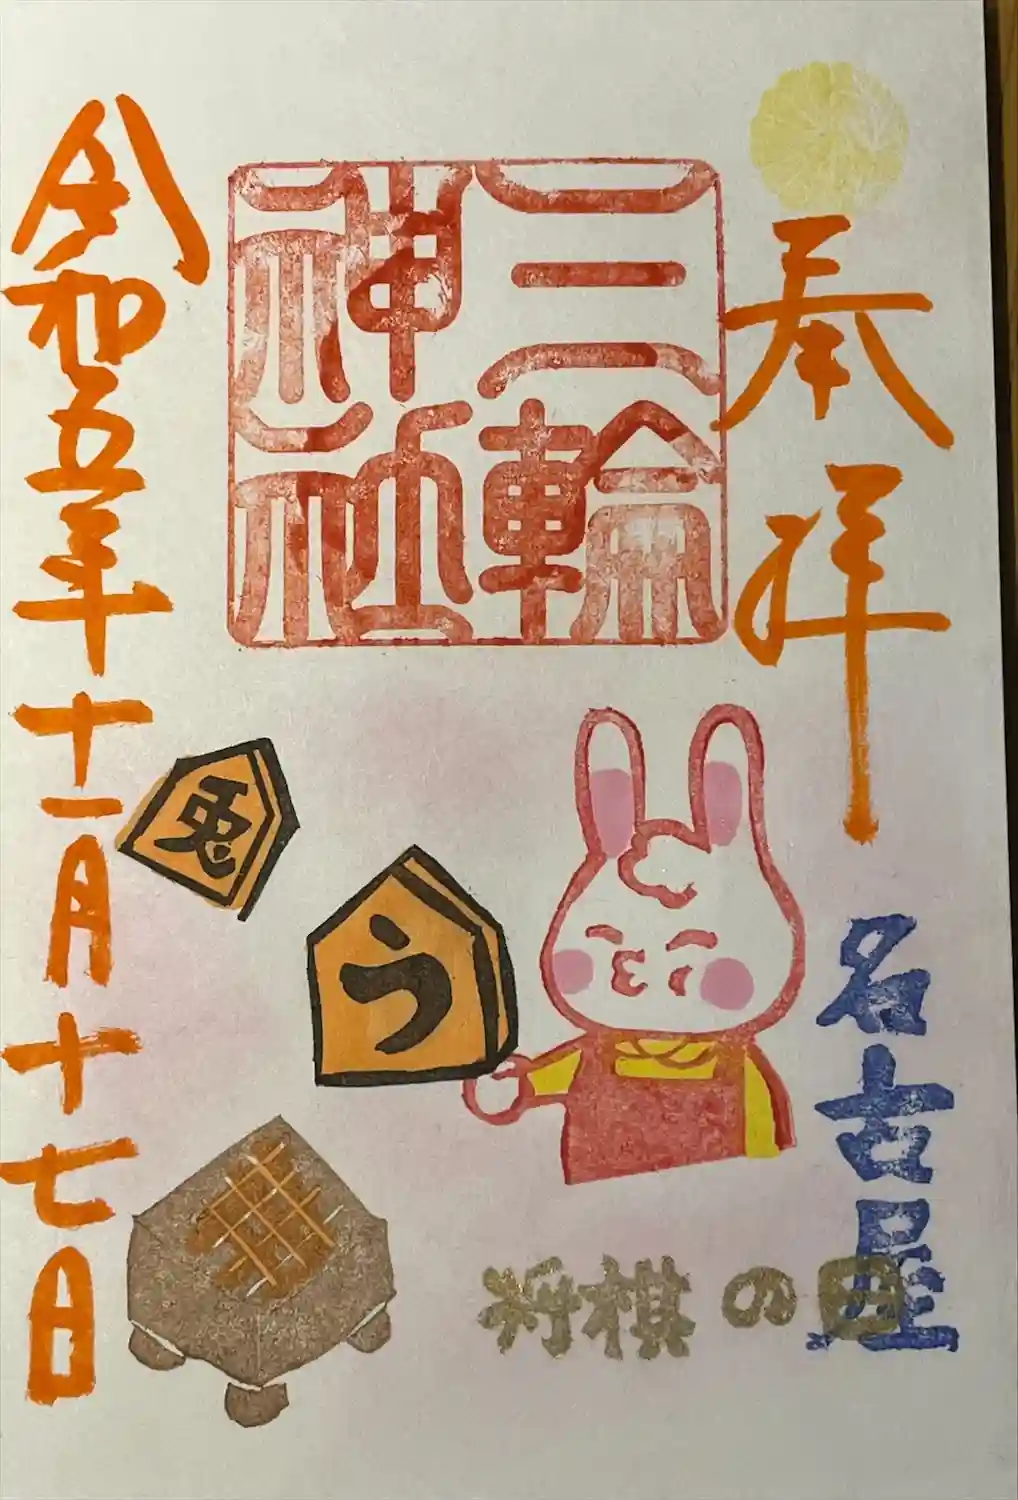 奉拝
名古屋
三輪
神社
兎
う
将棋の日
令和五年十一月十七日